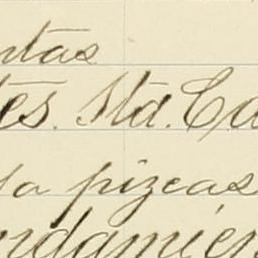 ntas
tes. Sta. Ca
la pizcas
ndamien